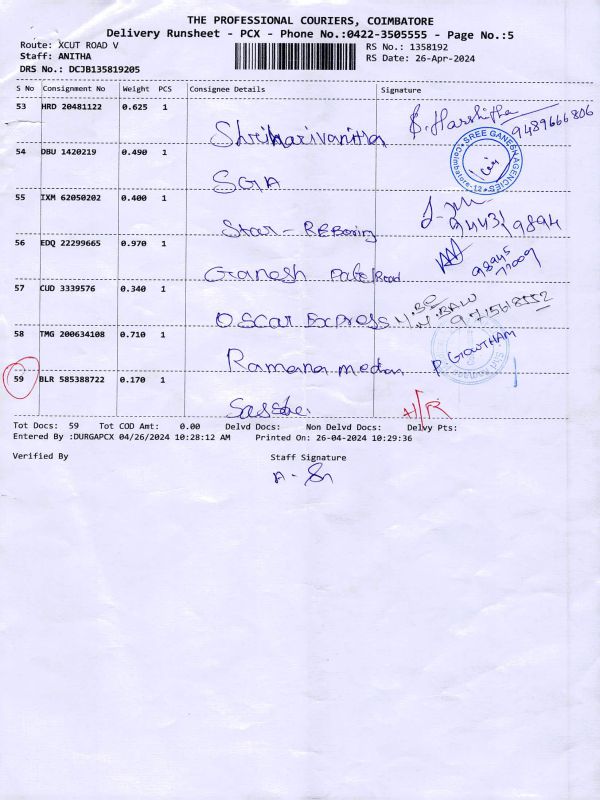 THE PROFESSIONAL COURIERS, COIMBATORE
Delivery Runsheet - PCX - Phone No.:0422-3505555 - Page No.:5
Route: XCUT ROAD V
RS No.: 1358192
Staff: ANITHA
RS Date: 26-Apr-2024
DRS No.: DCJB135819205
S No Consignment No Weight PCS Consignee Details Signature
53 HRD 20481122 0.625 1 Shriharivanitha S. Harshitha 9489666806
54 DBU 1420219 0.490 1 SGA SREE GANESH AGENCIES Coimbatore-12
55 IXM 62050202 0.400 1 Star - REBoring
56 EDQ 22299665 0.970 1 Ganesh
57 CUD 3339576 0.340 1 Oscar Express
58 TMG 200634108 0.710 1 Ramana P. GOWTHAM
59 BLR 585388722 0.170 1 H/R
Tot Docs: 59 Tot COD Amt: 0.00 Delvd Docs: Non Delvd Docs: Delvy Pts:
Entered By :DURGAPCX 04/26/2024 10:28:12 AM Printed On: 26-04-2024 10:29:36
Verified By Staff Signature